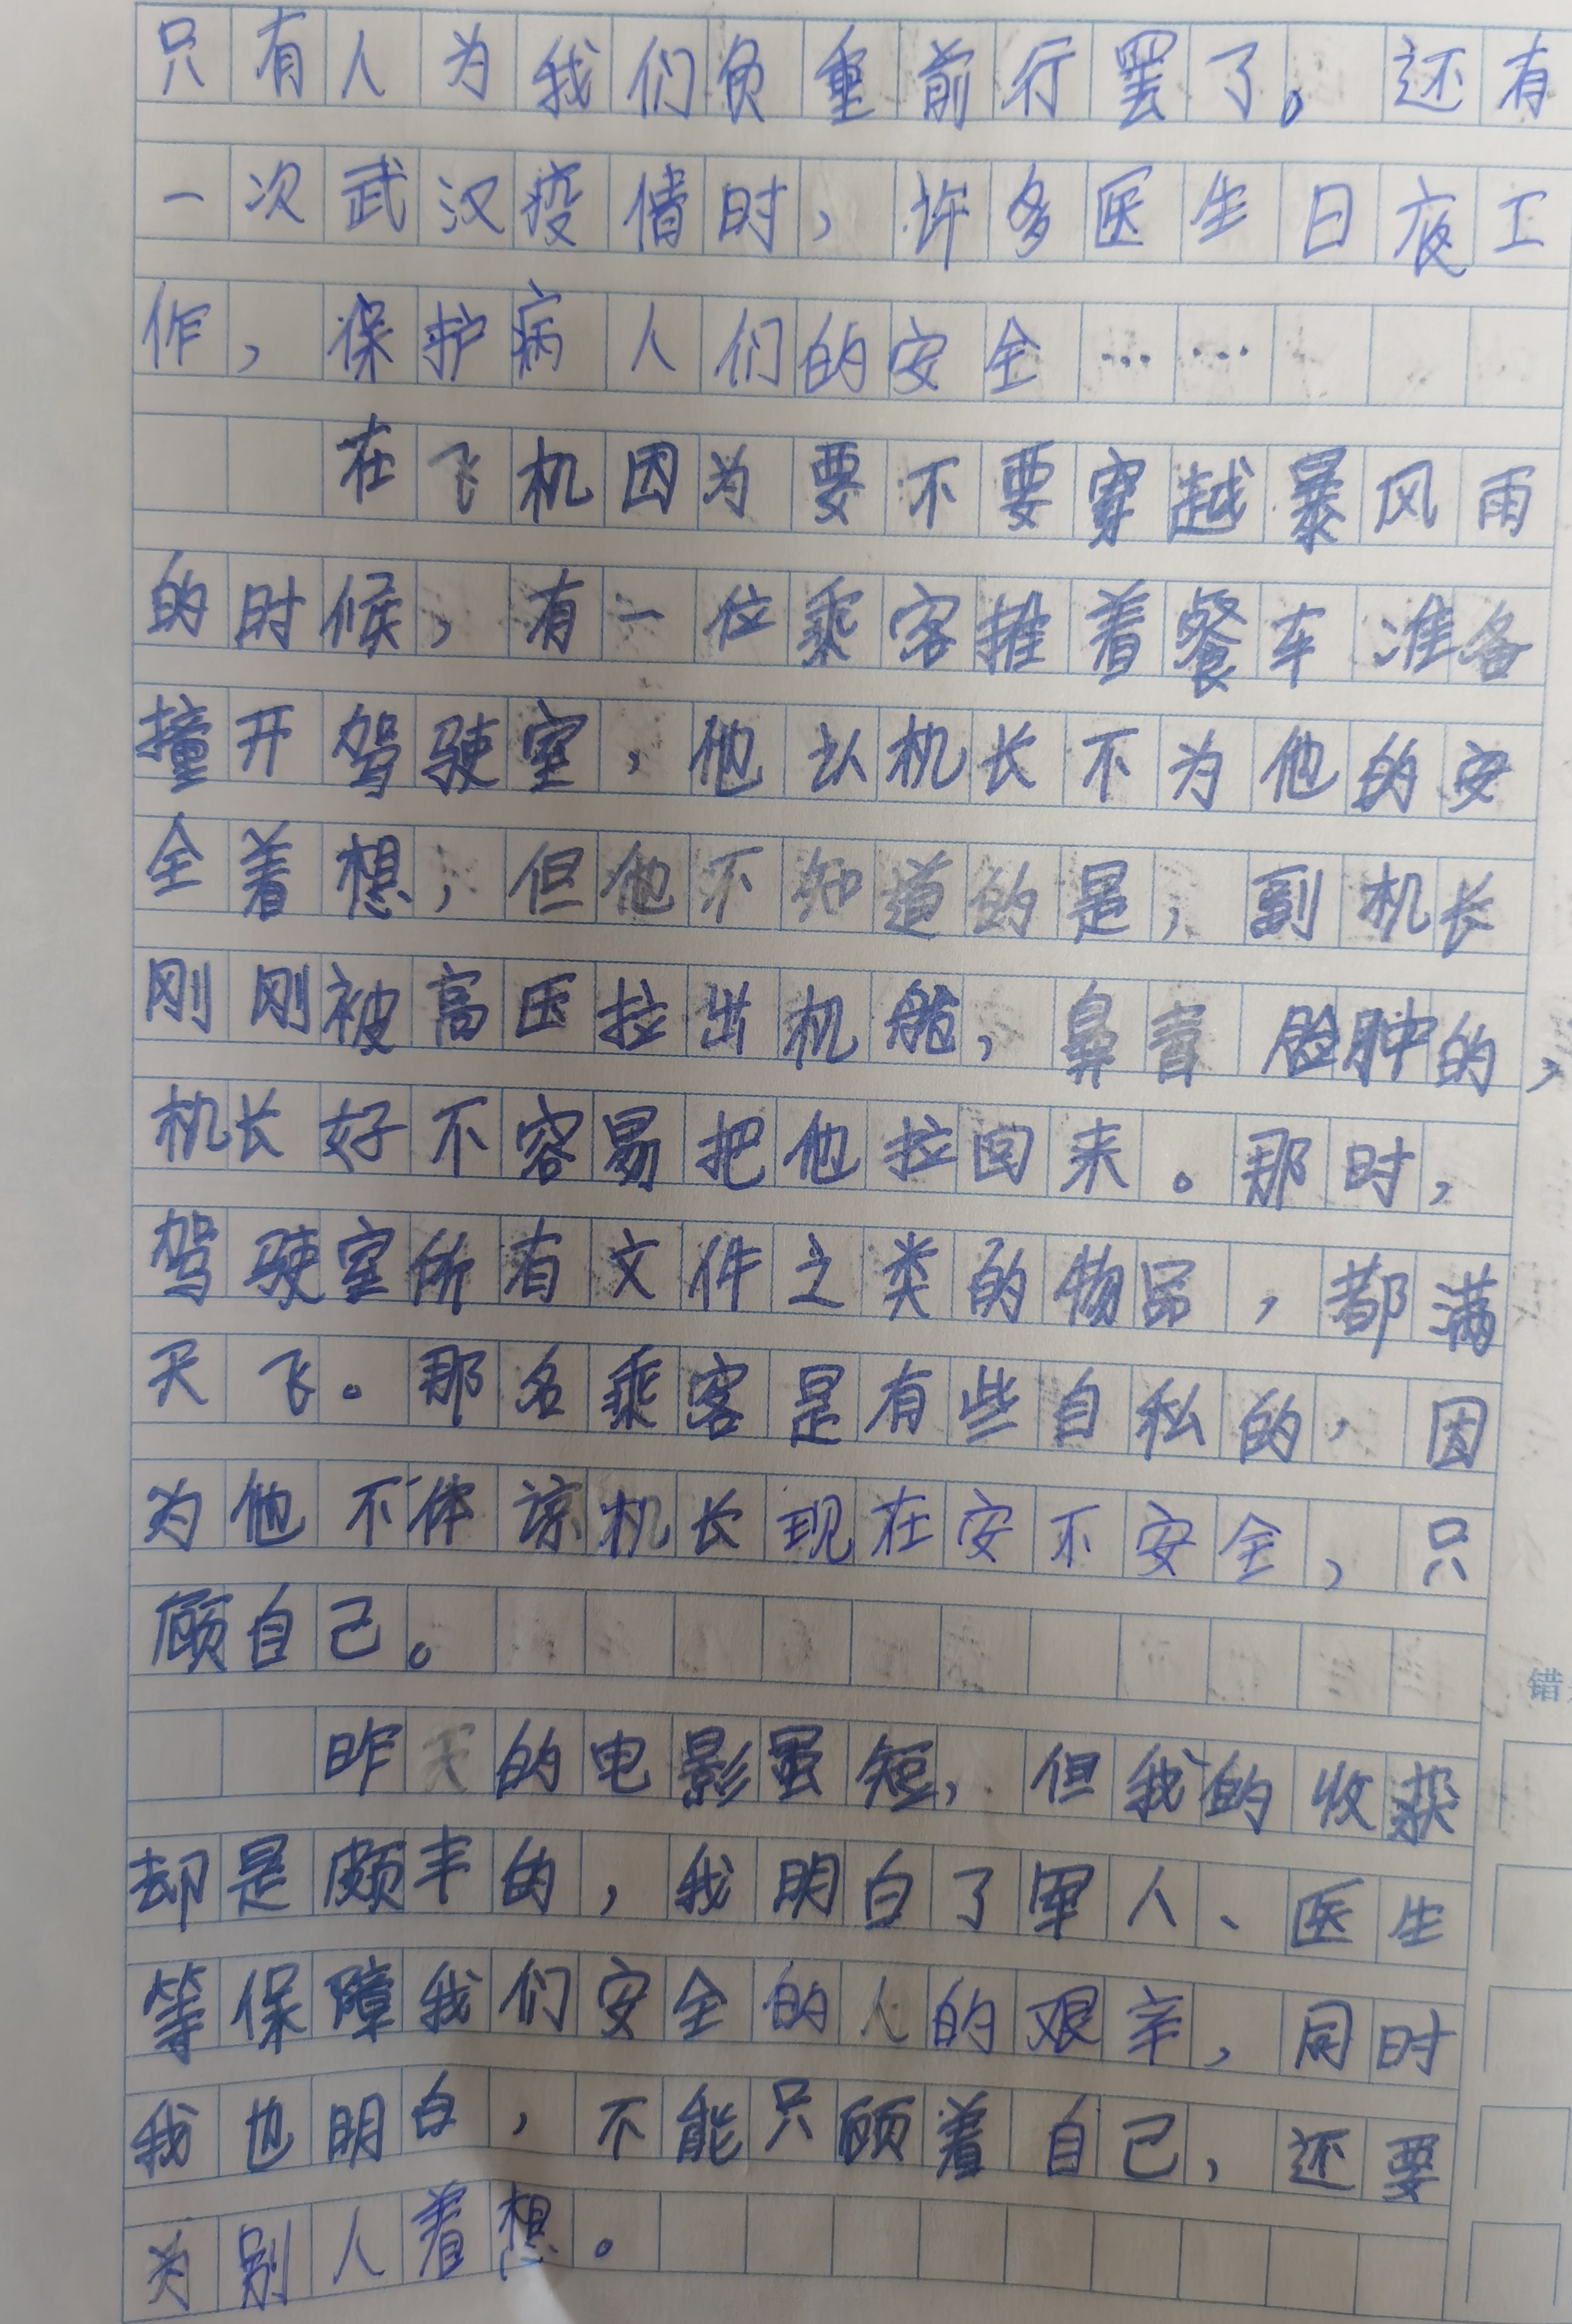 只有人为我们负重前行罢了。还有
一次武汉疫情时，许多医生日夜工
作，保护病人们的安全……
在飞机因为要不要穿越暴风雨
的时候，有一位乘客推着餐车准备
撞开驾驶室，他认机长不为他的安
全着想，但他不知道的是，副机长
刚刚被高压拉出机舱，鼻青脸肿的，
机长好不容易把他拉回来。那时，
驾驶室所有文件之类的物品，都满
天飞。那名乘客是有些自私的，因
为他不体谅机长现在安不安全，只
顾自己。
昨天的电影虽短，但我的收获
却是颇丰的，我明白了军人、医生
等保障我们安全的人的艰辛，同时
我也明白，不能只顾着自己，还要
为别人着想。
错